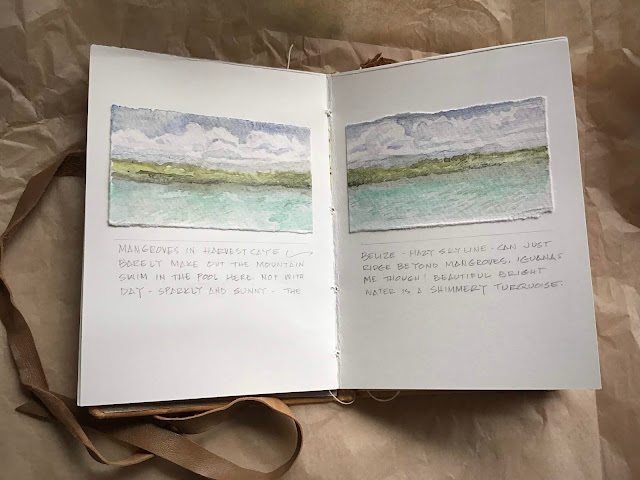 MANGROVES IN HARVEST CAYE, BELIZE - HAZY SKYLINE - CAN JUST
BARELY MAKE OUT THE MOUNTAIN RIDGE BEYOND MANGROVES. IGUANAS
SWIM IN THE POOL HERE NOT WITH ME THOUGH! BEAUTIFUL BRIGHT
DAY - SPARKLY AND SUNNY - THE WATER IS A SHIMMERY TURQUOISE.